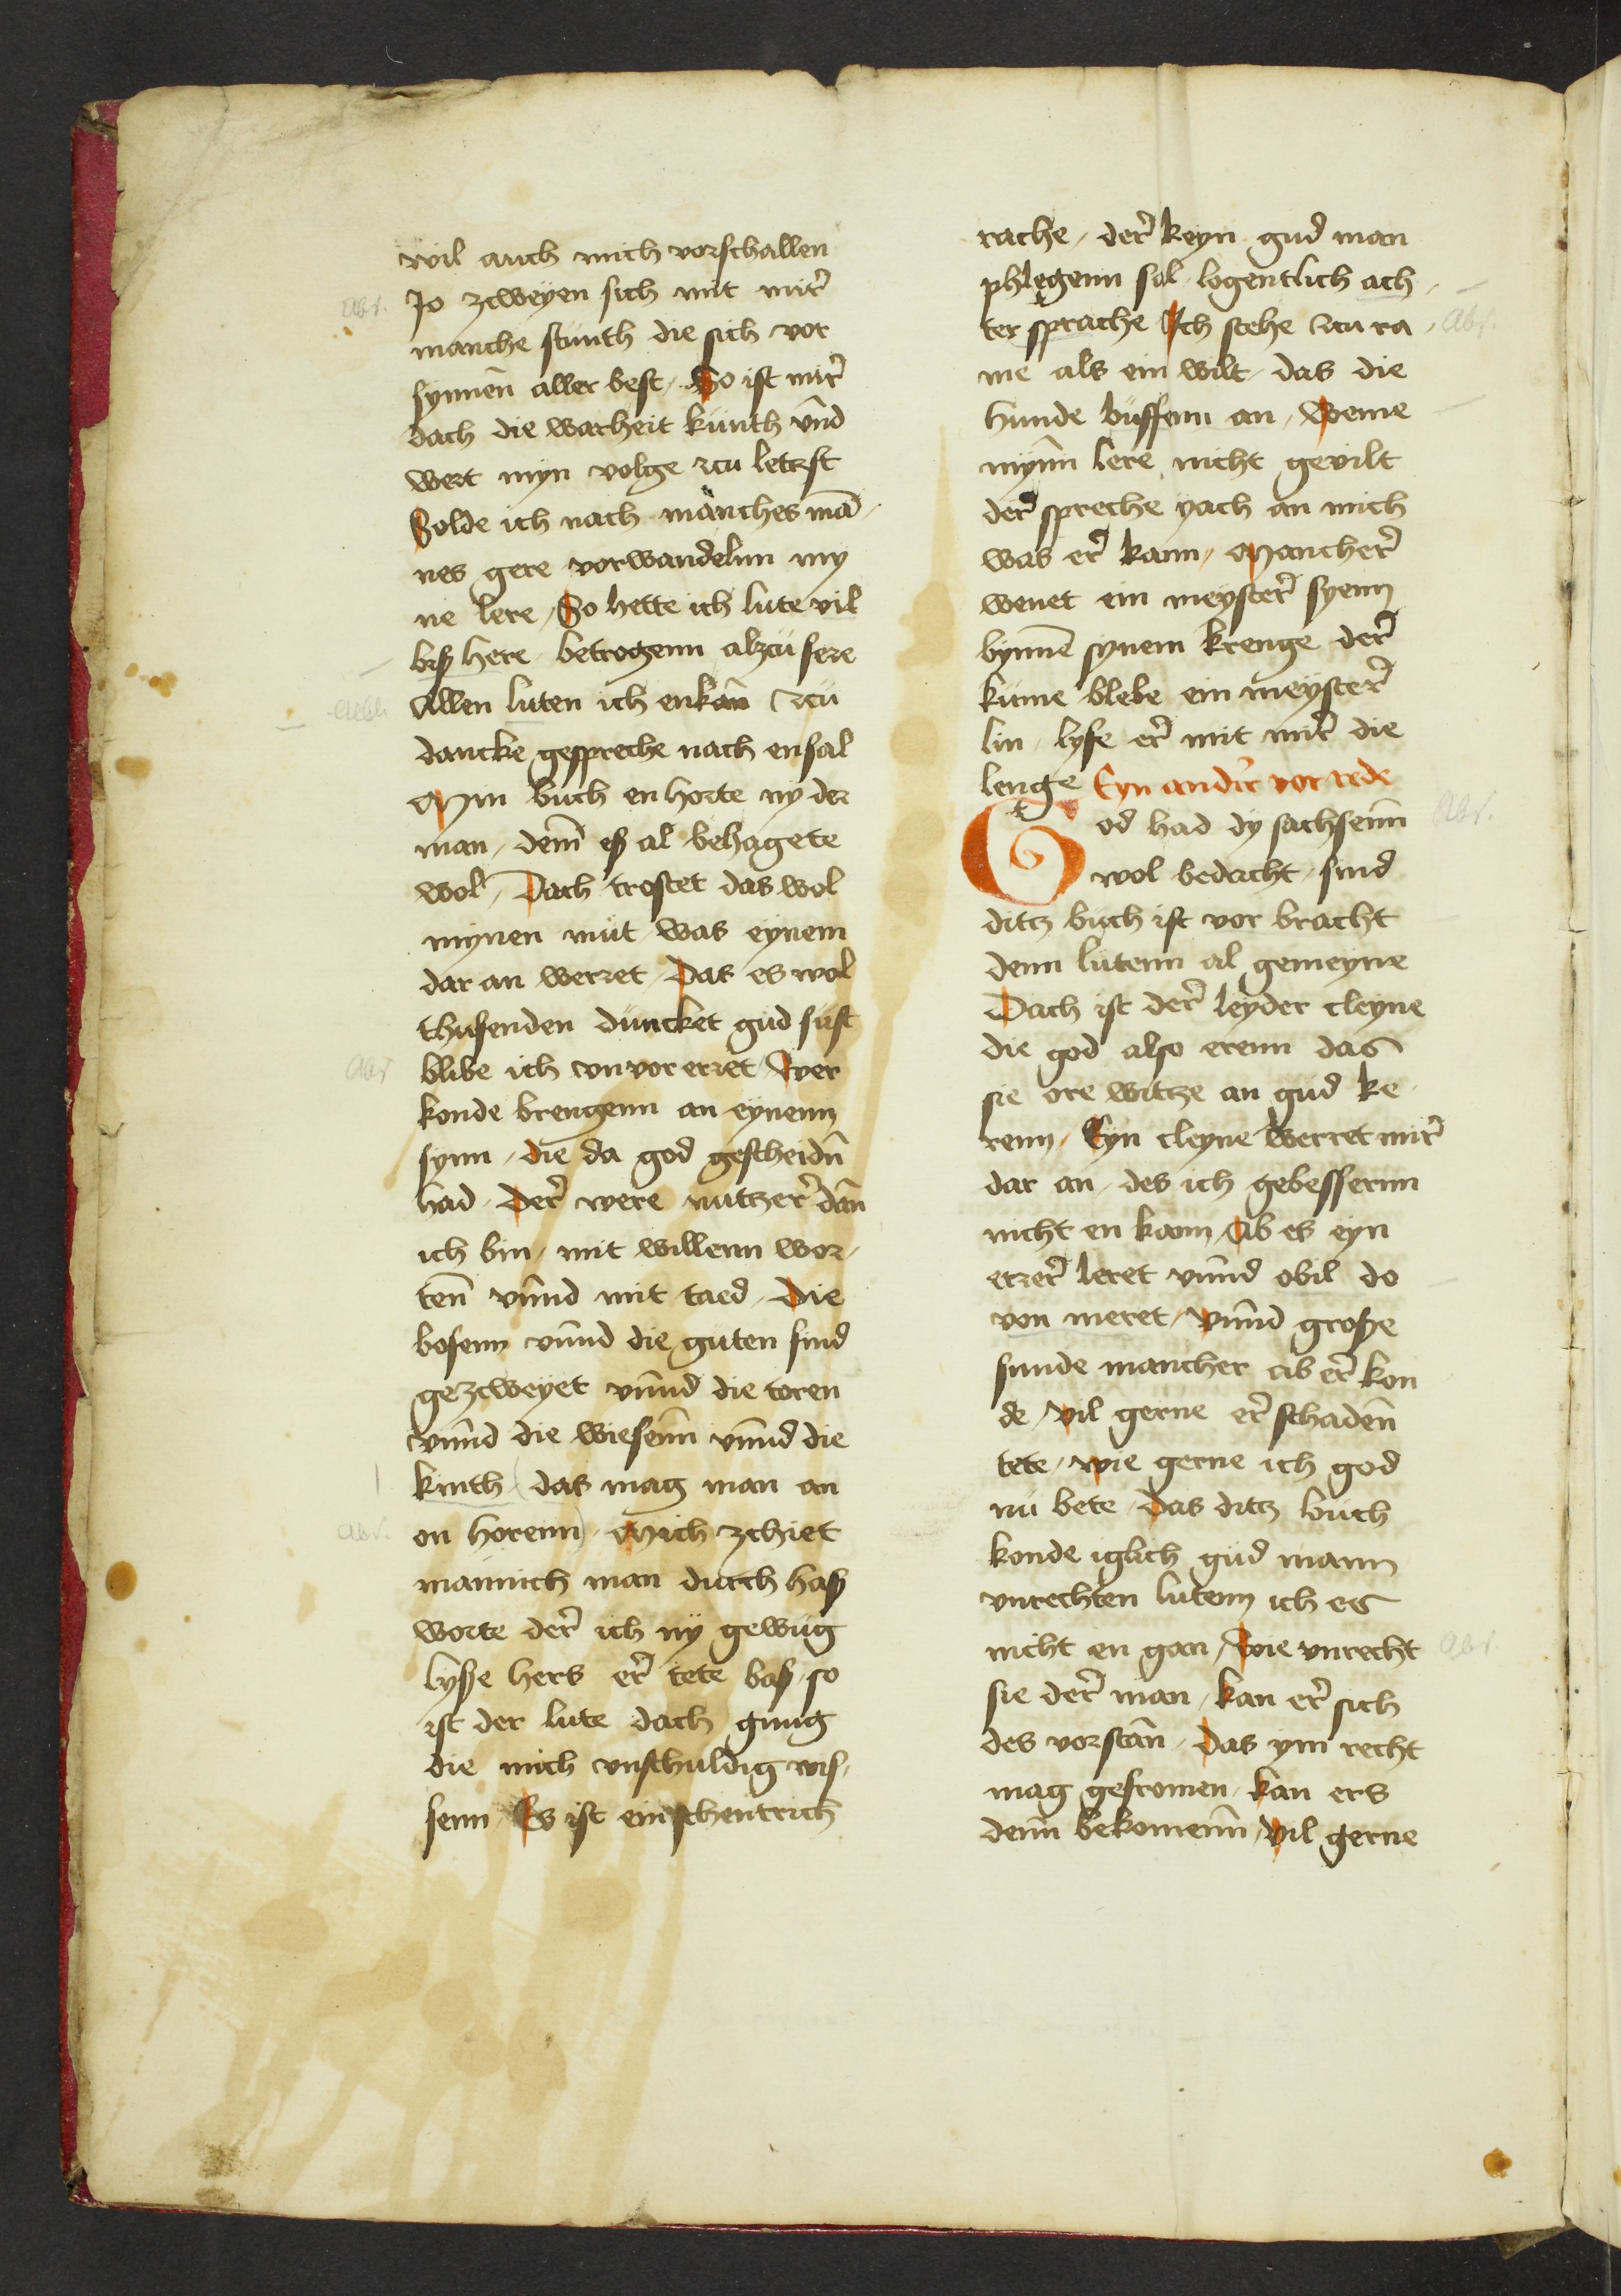 wil auch mich vorschallen
Jo zcweyen sich mit mir̄
manche stunth die sich vor
synnen aller best / So ist mir̄
dach die warheit kunth vn̄d
wert myn volge zcu letzst
Solde ich nach manches mā /
nes gere vorwandelnn my
ne lere / So hette ich lute vil
biß here betrogenn alzcu sere
Allen luten ich enkan zcu
dancke gespreche nach ensal
Min buch en horte ny der
man / dem̄ eß al behagete
wol / Dach trostet das wol
mynen mut was eynem
dar an werret / Das es wol
thusenden duncket gud sust
blibe ich vnvorerret / Wer
konde brengenn an eynenn
synn / die da god gescheidn̄
had / Der̄ were nutzer̄ dan̄
ich bin / mit willenn wor /
ten̄ vn̄nd mit taed / Die
bosenn vn̄nd die guten sind
gezcweyet vn̄nd die toren
vn̄nd die wiesen̄n vn̄nd die
kinth das mag man an
on horenn / Mich zchiet
mannich man durch haß
worte der̄ ich ny gewug
lyße hers er̄ tete baß / so
ist der lute dach gnug
die mich vnschuldig wis /
senn / Es ist ein schentrich
rache / der̄ keyn gud man
phlegenn sal / logentlich ach /
ter sprache Ich stehe zcu ra /
me als ein wilt / das die
hunde buffenn an / Weme
mynn̄ lere nicht gevilt
der̄ spreche yach an mich
was er̄ kann / Mancher̄
wenet ein meyster̄ syenn
bynnē synem krenge der̄
kume blebe ein meyster̄
lin / lyfe er̄ mit mir̄ die
lenge Eyn andir vor rede
God had dy sachsenn̄
wol bedacht / sind
ditz buch ist vor bracht
denn lutenn al gemeyne
Dach ist der̄ leyder cleyne
die god also erenn das
sie ore witze an gud ke
renn / Eyn cleyne werret mir̄
dar an / des ich gebessernn
nicht en kann / Ab es eyn
erzer̄ leret vn̄nd obil do
von meret / Vn̄nd große
sunde mancher ab er̄ kon
de / Vil gerne er̄ schaden̄
tete / wie gerne ich god
nu bete / Das ditz buch
konde iglich gud mann
vnrechten lutenn ich es
nicht en gan / Wie vnrecht
sie der̄ man / kan er̄ sich
des vorstan̄ / Das ym recht
mag gefromen / kan ers
denn̄ bekomen̄n / Vil gerne